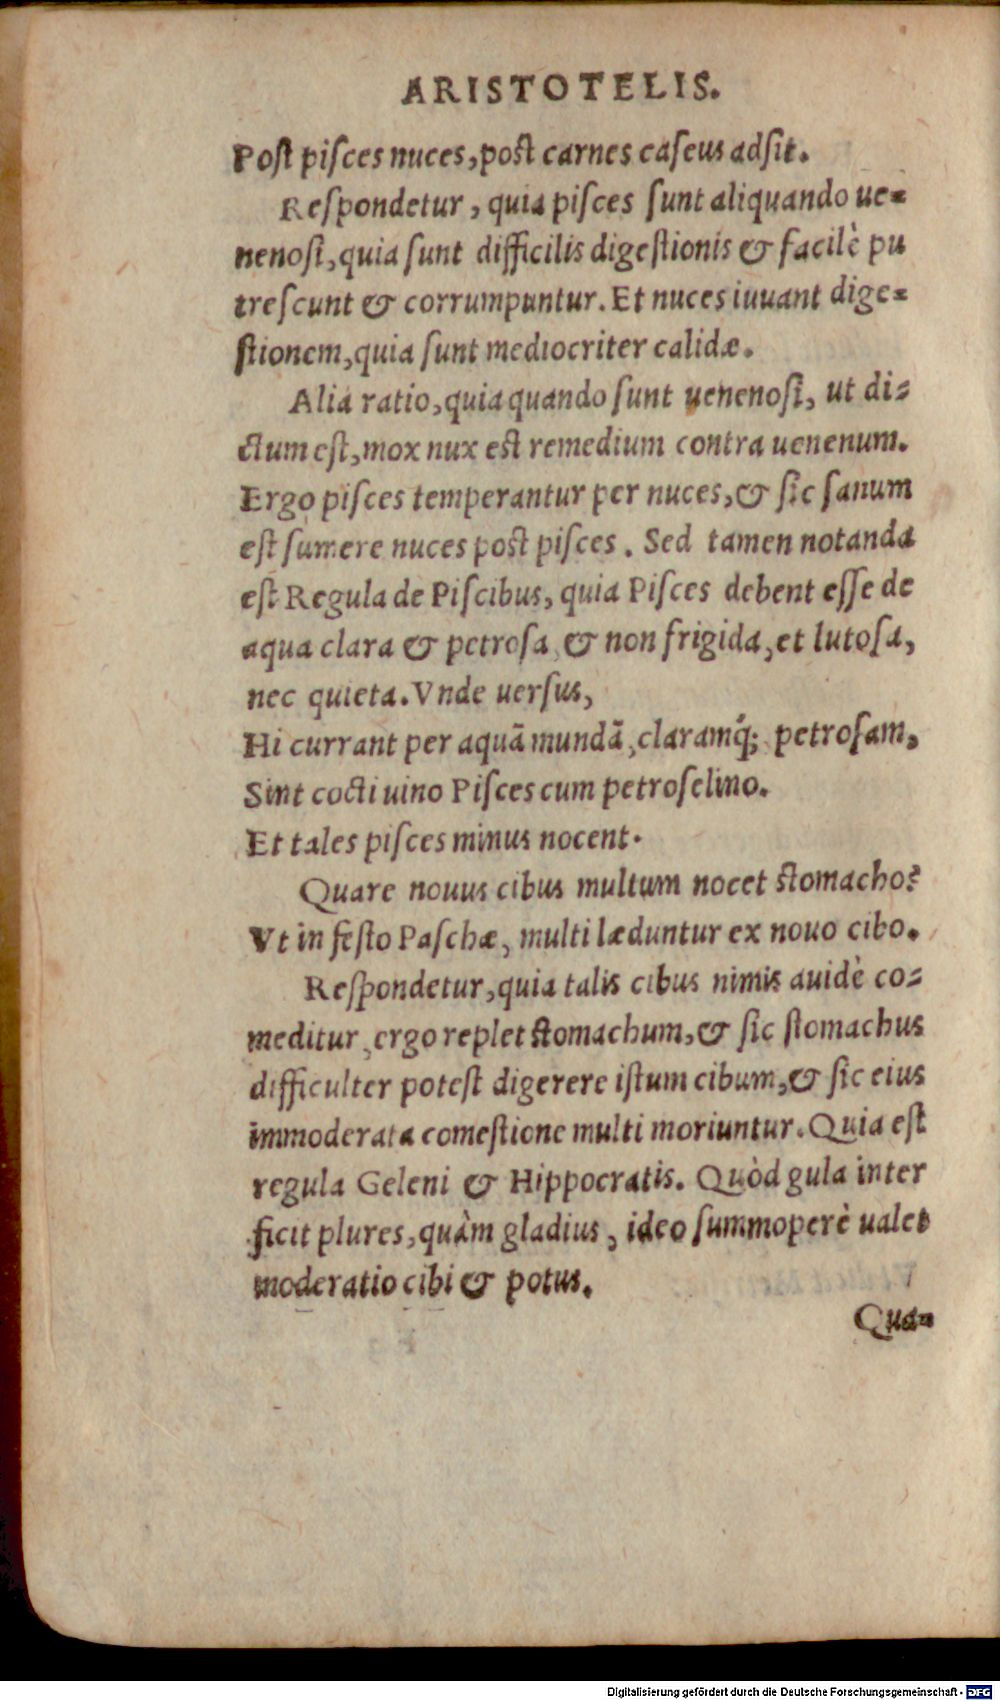 ARISTOTELIS.
Post piſces nuces, post carnes caſeus adſit.
Reſpondetur, quia piſces ſunt aliquando ue=
nenoſi, quia ſunt difficilis digeſtionis & facilè pu
treſcunt & corrumpuntur. Et nuces iuuant dige=
ſtionem, quia ſunt mediocriter calidæ.
Alia ratio, quia quando ſunt uenenoſi, ut di=
ctum eſt, mox nux est remedium contra uenenum.
Ergo piſces temperantur per nuces, & ſic ſanum
eſt ſumere nuces post piſces. Sed tamen notanda
eſt Regula de Piſcibus, quia Piſces debent eſſe de
aqua clara & petroſa, & non frigida, et lutoſa,
nec quieta. Vnde uerſus,
Hi currant per aquā mundā, claramq́; petroſam,
Sint cocti uino Piſces cum petroſelino.
Et tales piſces minus nocent.
Quare nouus cibus multum nocet stomacho?
Vt in feſto Paſchæ, multi læduntur ex nouo cibo.
Reſpondetur, quia talis cibus nimis auidè co=
meditur, ergo replet stomachum, & ſic ſtomachus
difficulter poteſt digerere iſtum cibum, & ſic eius
immoderata comeſtione multi moriuntur. Quia eſt
regula Geleni & Hippocratis. Quòd gula inter
ficit plures, quàm gladius, ideo ſummoperè ualet
moderatio cibi & potus.
Qua=
Digitalisierung gefördert durch die Deutsche Forschungsgemeinschaft - DFG